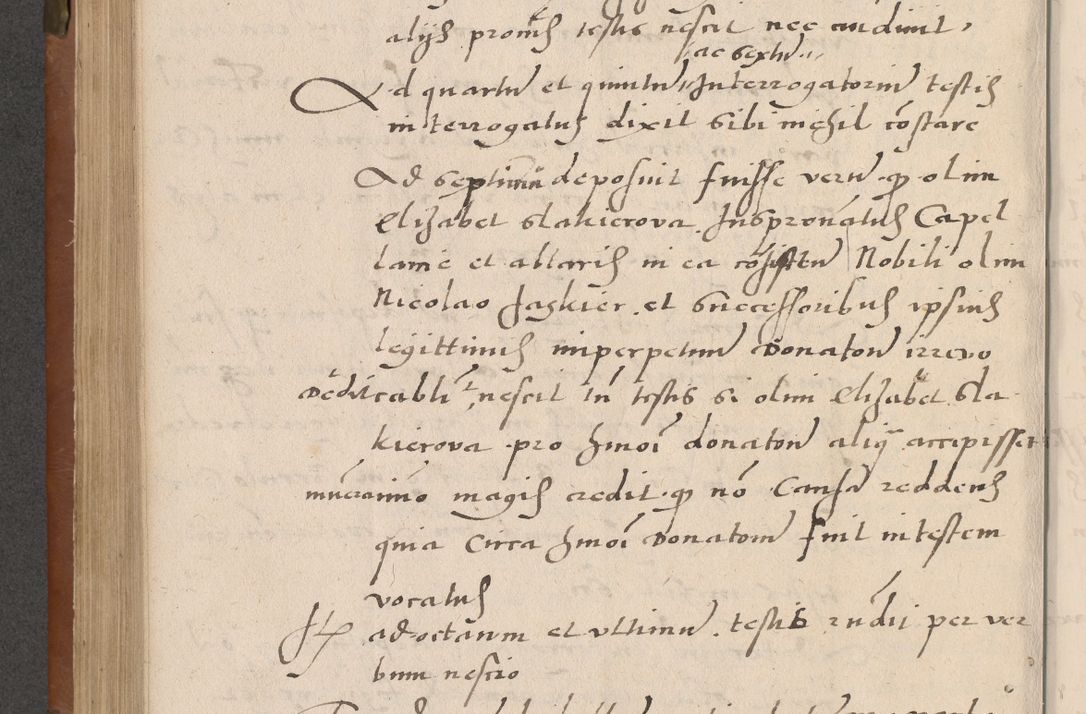 alijs promis testis nescit nec audivit,
ac sextu
Ad quartu et quintu Interrogatoriu testis
interrogatus dixit sibi nichil costare
Ad septimu deposuit fuisse veru q olim
Elizabet Slakierova Juspronatus Capel
lanie et altaris in ea cosisten Nobili olim
Nicolao Jaskier et successoribus ipsius
legittimis inperpetuu Donaton irrevo
Dedit cabli, nescit tn testis si olim Elizabet Sla
kierova pro hmoi donaton aliq accepisset
mucrimo magis credit q no Causa reddens
quia Circa hmoi Donatom fuit in testem
vocatus
It ad octavum et ultimu testis rndit per ver
bum nescio